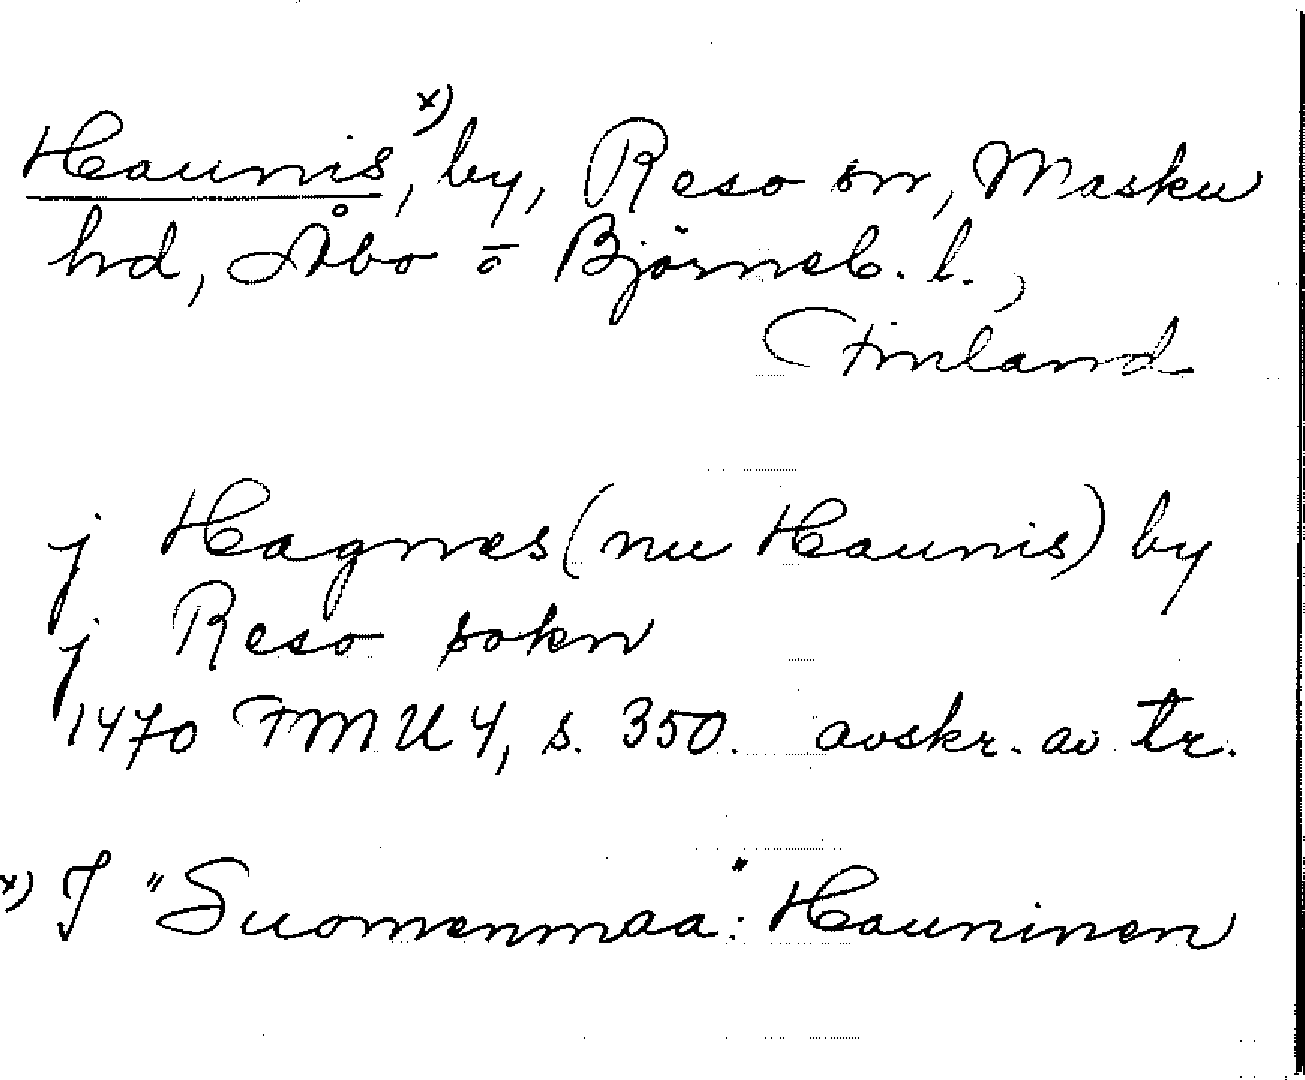 Haunis x), by, Reso sn, Masku
hd, Åbo o Björneb. l.,
Finland
j Hagnes (nu Haunis) by
j Reso sokn
1470 FMU 4, s. 350. avskr. av tr.
x) I "Suomenmaa": Hauninen